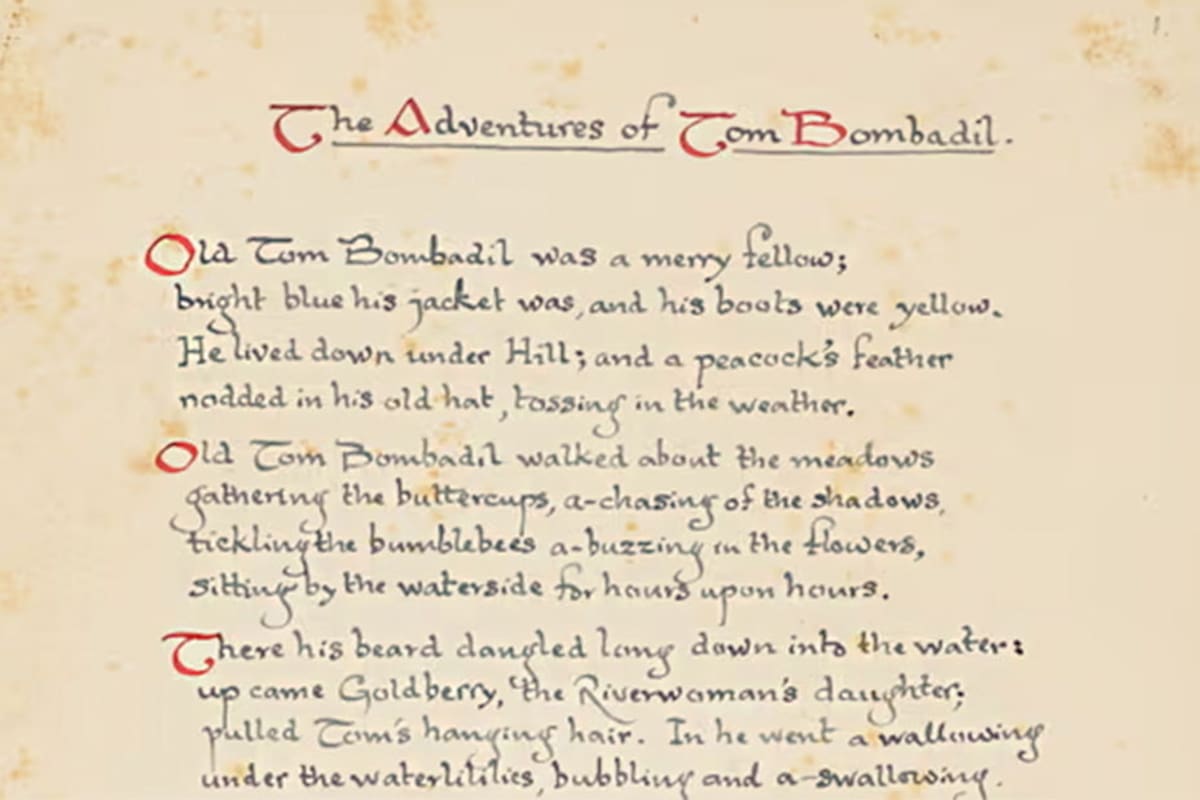 1.
The Adventures of Tom Bombadil.
Old Tom Bombadil was a merry fellow;
bright blue his jacket was, and his boots were yellow.
He lived down under Hill; and a peacock's feather
nodded in his old hat, tossing in the weather.
Old Tom Bombadil walked about the meadows
gathering the buttercups, a-chasing of the shadows,
tickling the bumblebees a-buzzing in the flowers,
sitting by the waterside for hours upon hours.
There his beard dangled long down into the water:
up came Goldberry, the Riverwoman's daughter;
pulled Tom's hanging hair. In he went a wallowing
under the waterlilies, bubbling and a-swallowing.